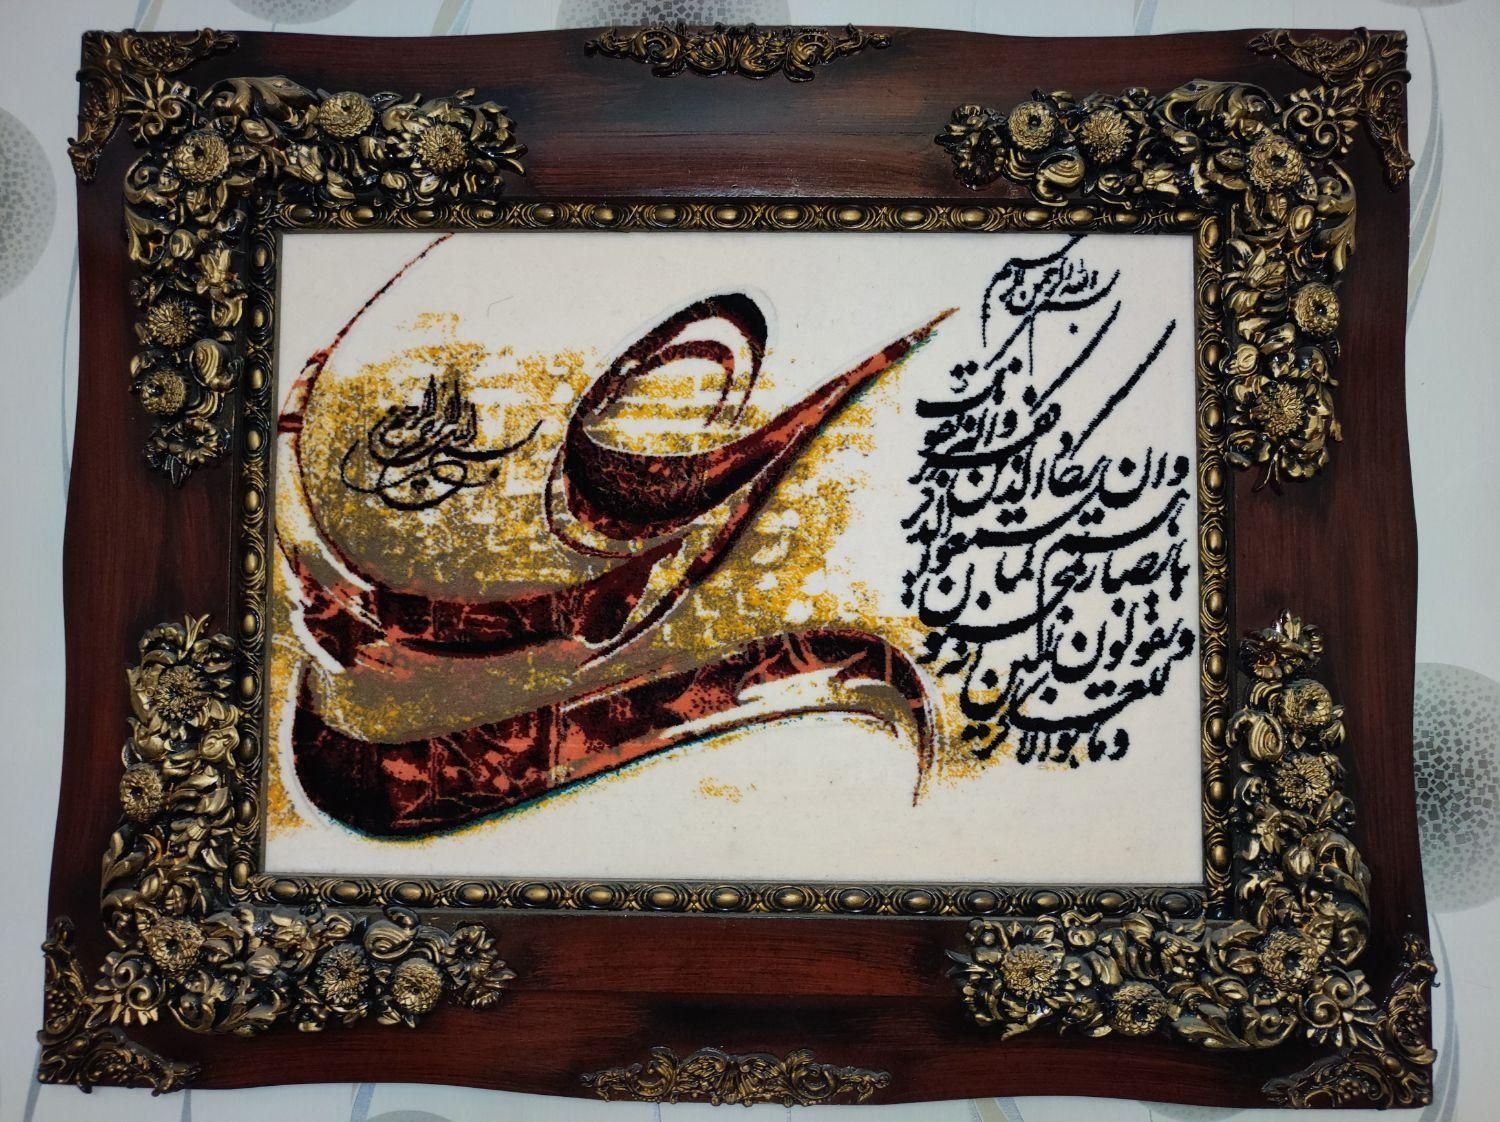 بسم الله الرحمن الرحیم
وان یکاد الذین کفروا
لیزلقونک بابصارهم
لما سمعوا الذکر
و یقولون انه لمجنون
و ما هو الا ذکر للعالمین
بسم الله الرحمن الرحیم